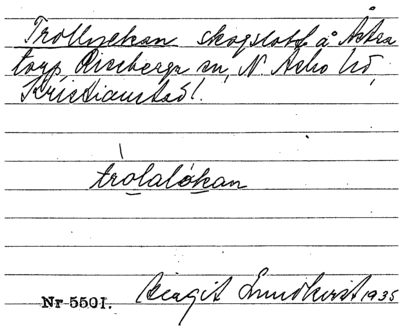 Trollyckan skogslott å Åstra
torp, Riseberga sn, N. Åsbo hd,
Kristianstad l.
trolalókan
Nr 5501. Birgit Lundkvist 1935